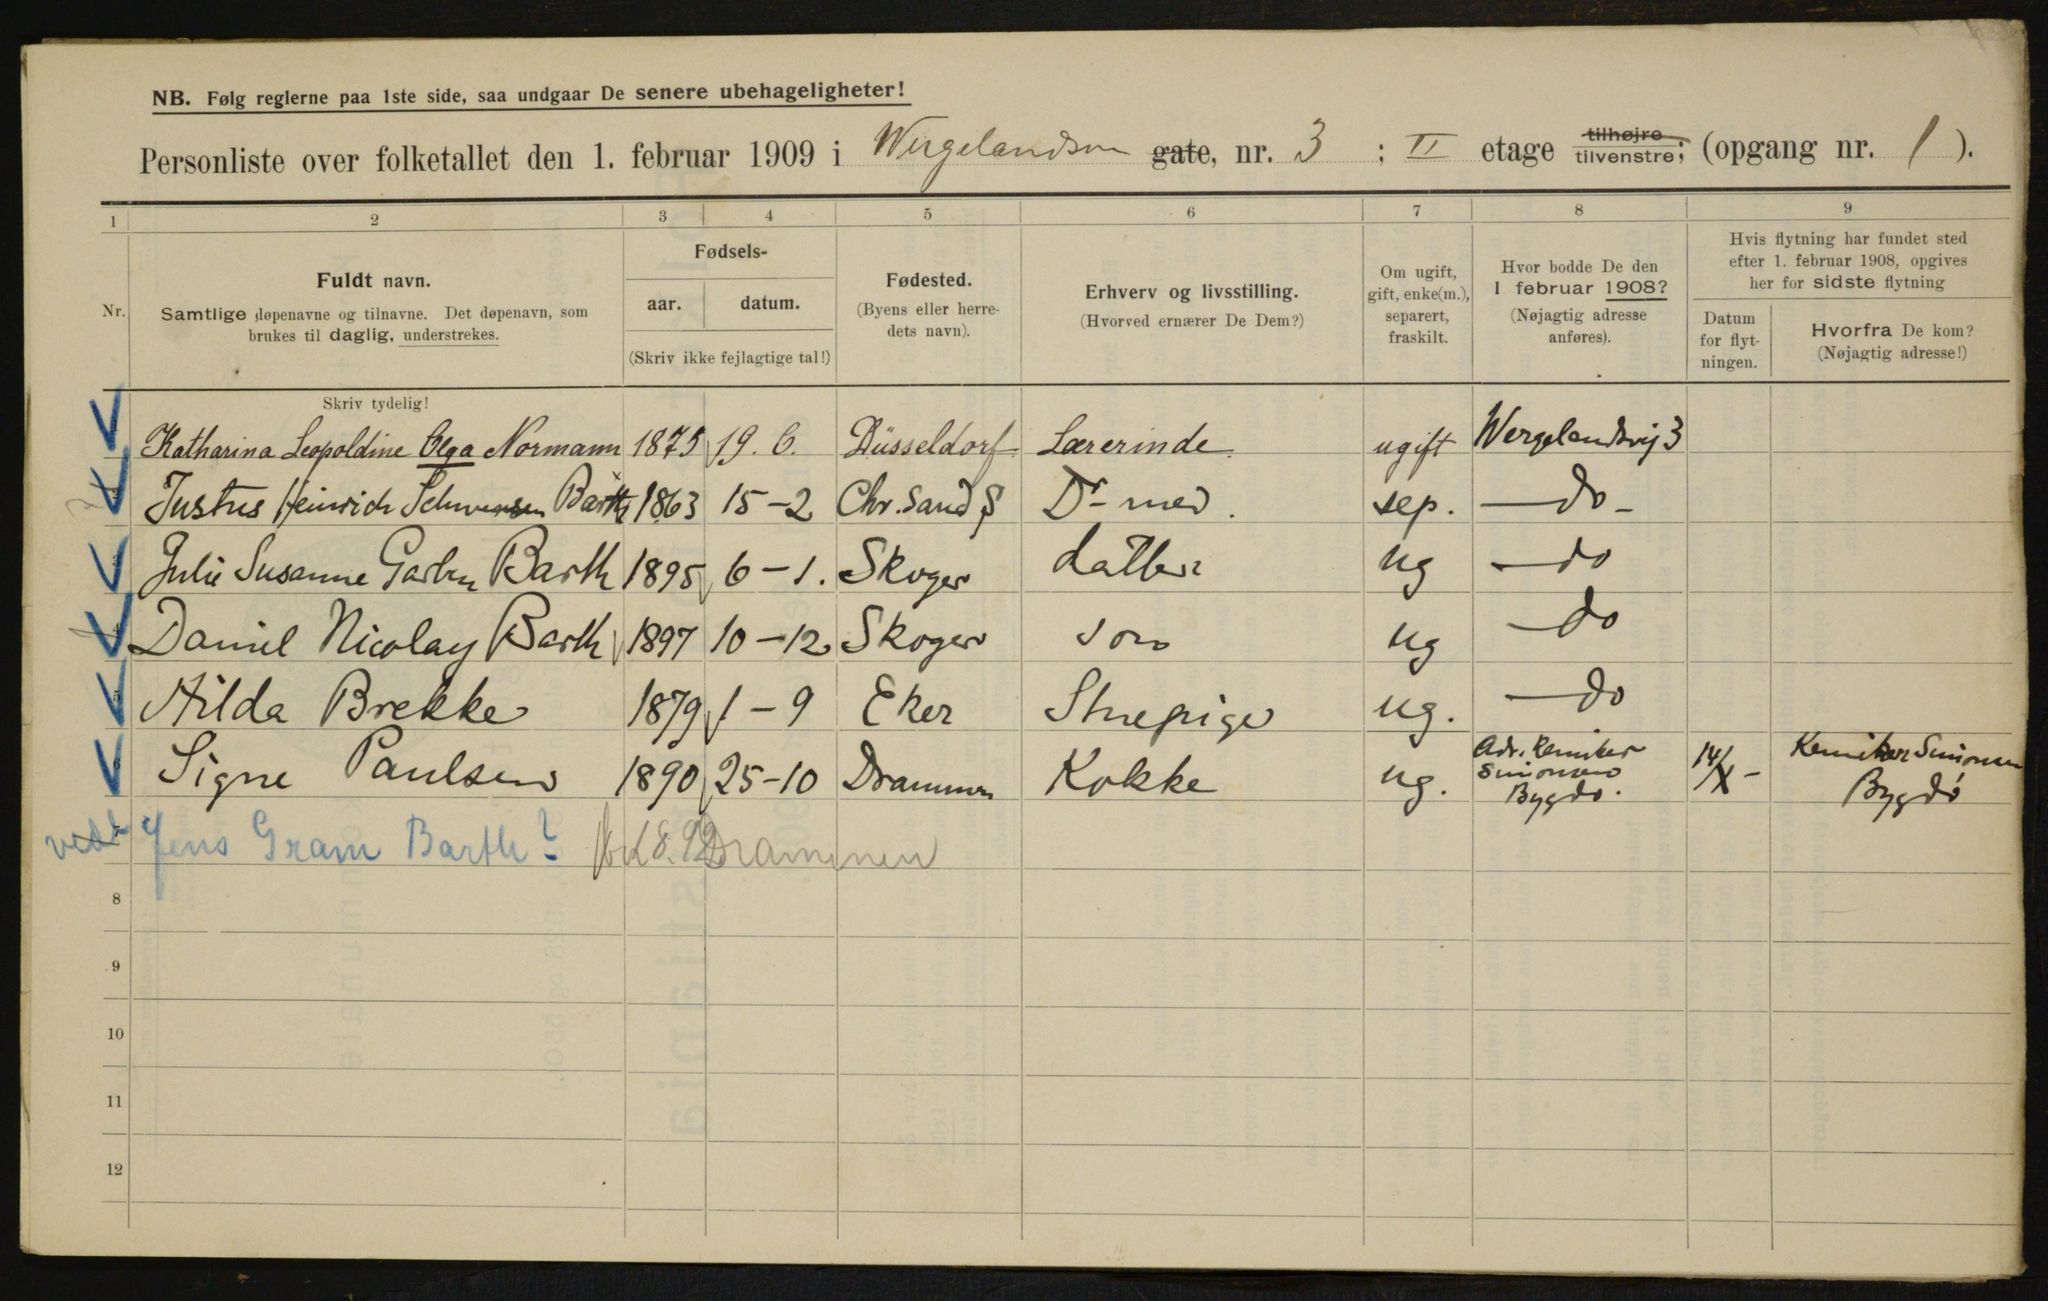 NB. Følg reglerne paa 1ste side, saa undgaar De senere ubehageligheter!
Personliste over folketallet den 1. februar 1909 i Wergelandsvn gate, nr. 3 ; II etage tilhøjre tilvenstre; (opgang nr. 1 ).
1 2 3 4 5 6 7 8 9
Nr.
Fuldt navn.
Samtlige døpenavne og tilnavne. Det døpenavn, som
brukes til daglig, understrekes.
Fødsels-
aar. datum.
(Skriv ikke fejlagtige tal!)
Fødested.
(Byens eller herre-
dets navn).
Erhverv og livsstilling.
(Hvorved ernærer De Dem?)
Om ugift,
gift, enke(m.),
separert,
fraskilt.
Hvor bodde De den
1 februar 1908?
(Nøjagtig adresse
anføres).
Hvis flytning har fundet sted
efter 1. februar 1908, opgives
her for sidste flytning
Datum
for flyt-
ningen.
Hvorfra De kom?
(Nøjagtig adresse!)
Skriv tydelig!
Katharina Leopoldine Olga Normann 1875 19. 6. Düsseldorf Lærerinde ugift Wergelandsvj 3
Justus Heinrich Barth 1863 15-2 Chr. Sand S Dr med. sep. — do —
Julie Susanne Barth 1895 6-1. Skoger datter ug — do
Daniel Nicolay Barth 1897 10-12 Skoger søn ug — do
5 Hilda Brekke 1879 1-9 Eker Stuepige ug. — do
Signe Paulsen 1890 25-10 Drammen Kokke ug. Adr. Kemiker Simonsen Bygdø. 14/X - Kemiker Simonsen Bygdø
Jens Gram Barth? 1892 Drammen
8
9
10
11
12